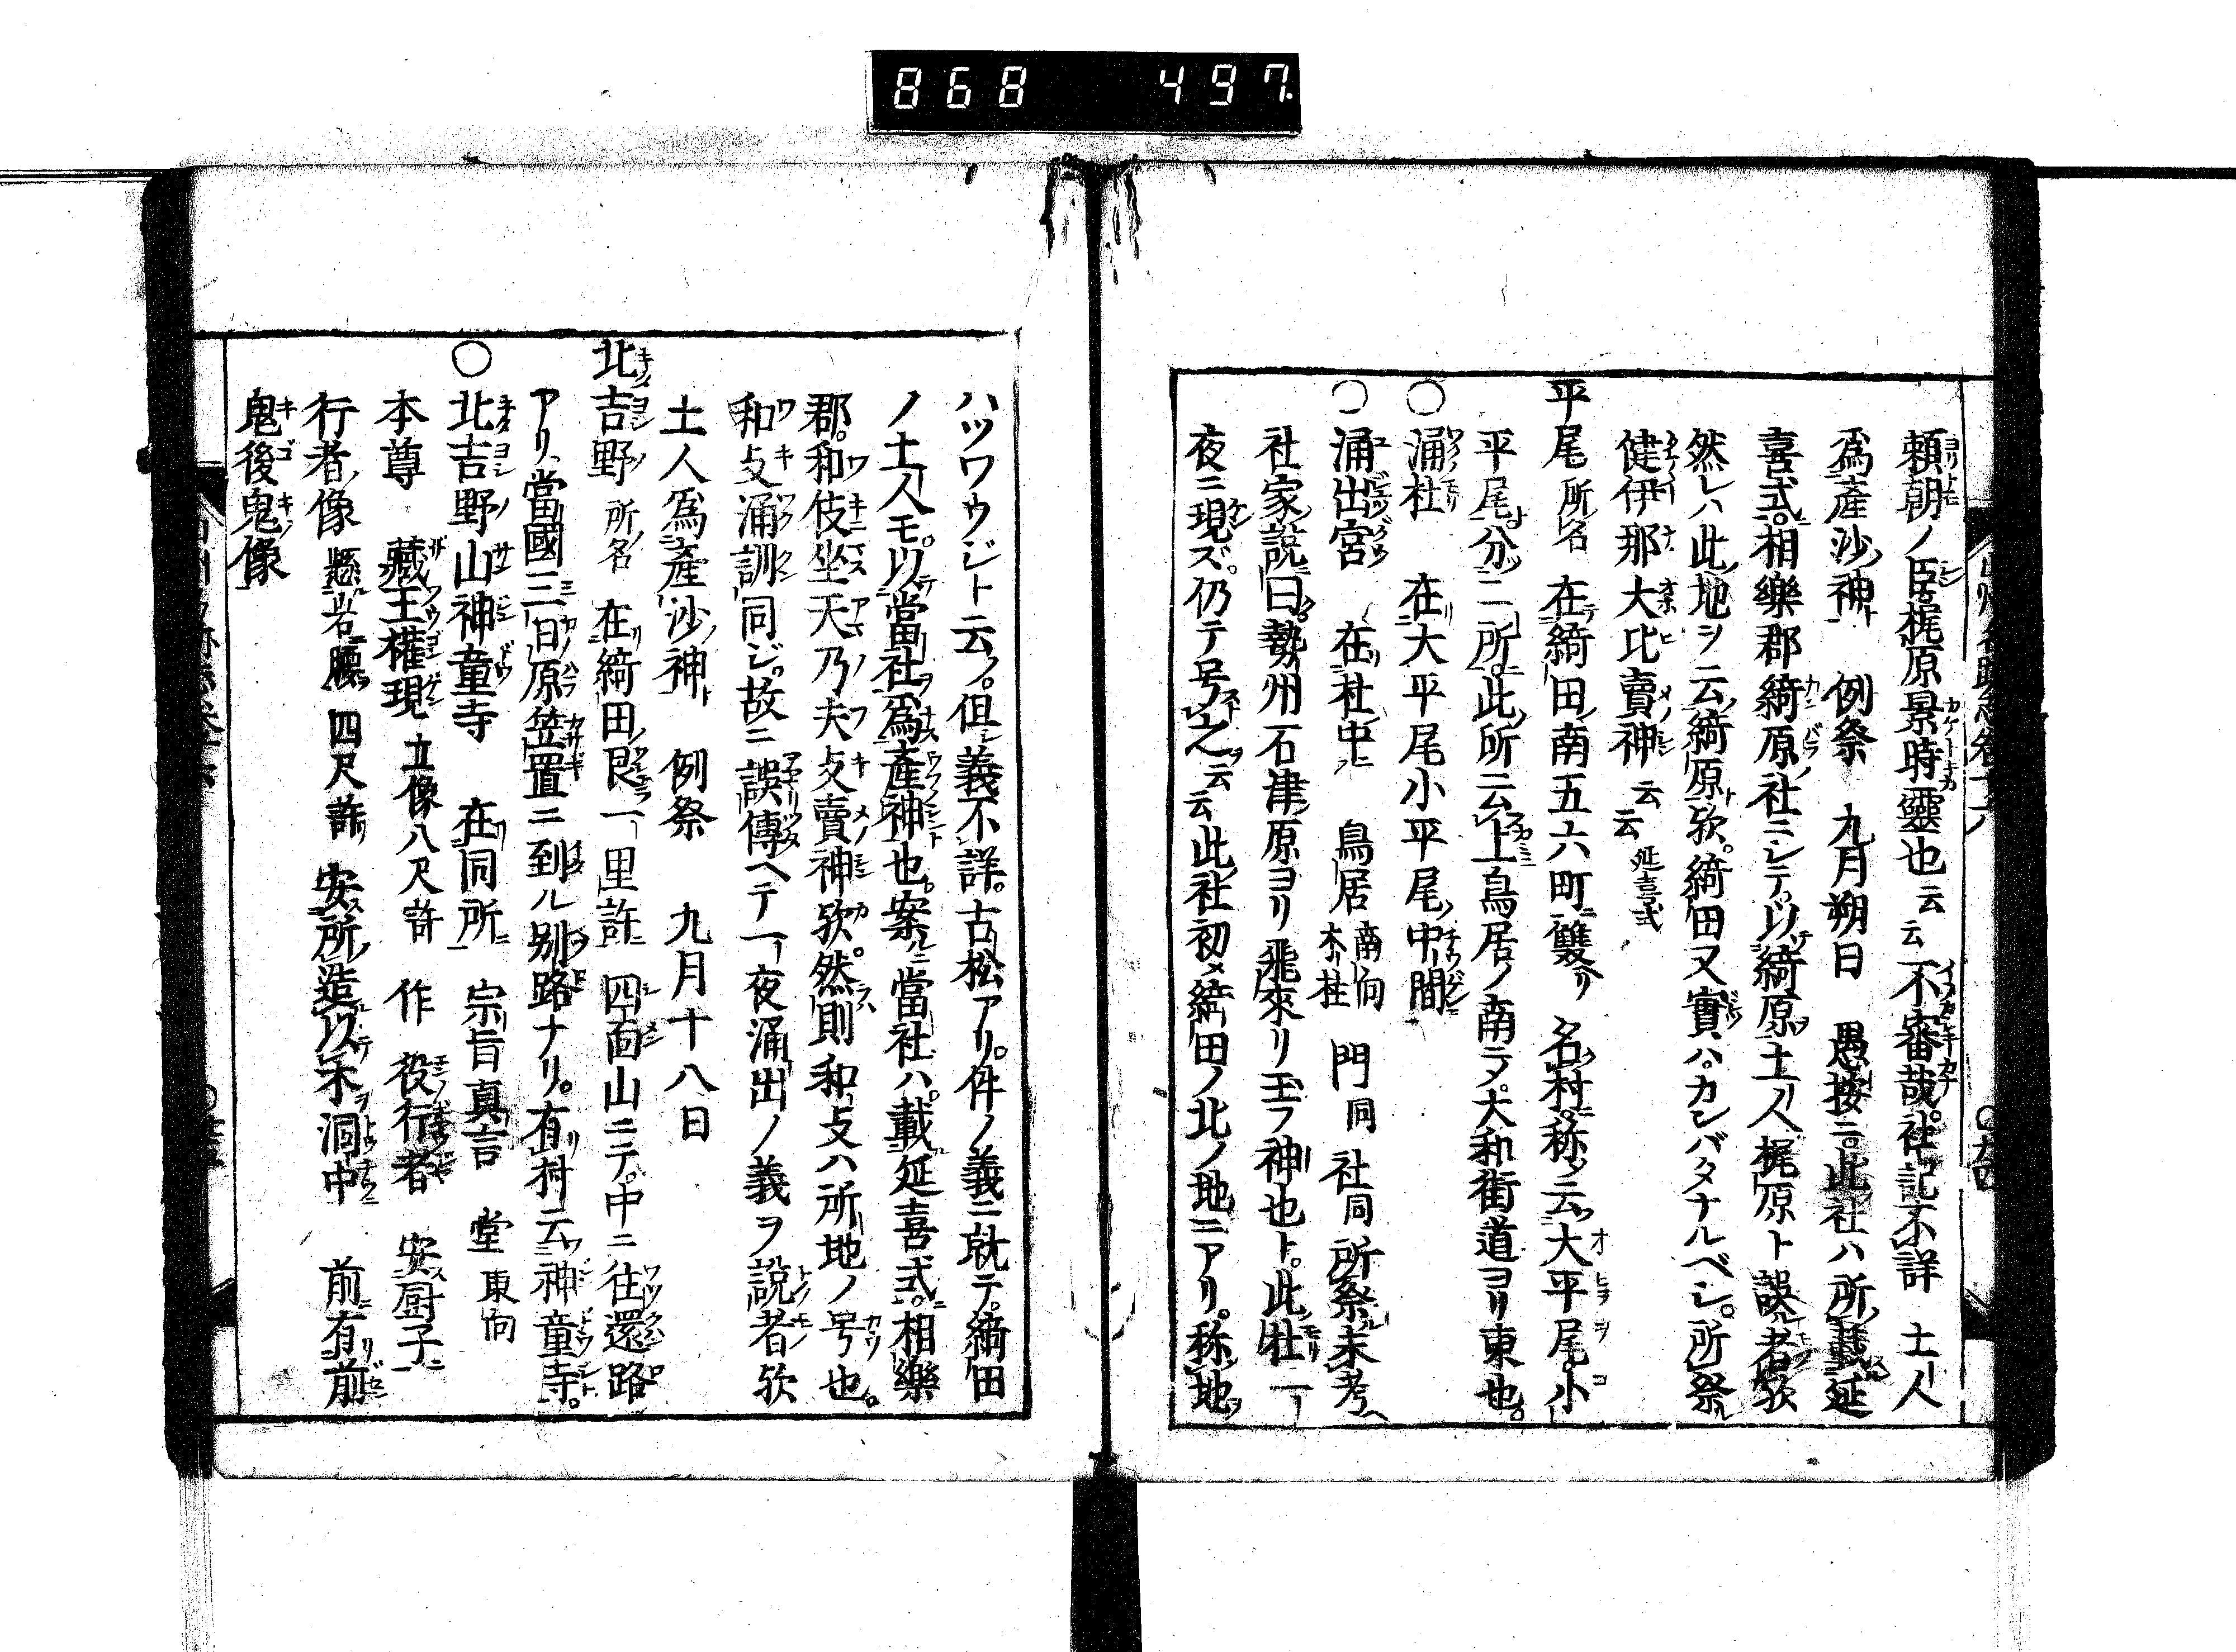 868 497
頼朝ノ臣梶原景時靈也云云不審哉社記不詳 土人
爲産沙神 例祭 九月朔日 愚按ニ此社ハ所載延
喜式相樂郡綺原社ニシテ以綺原土人梶原ト誤者歟
然レハ此地ヲ云綺原歟綺田又實ハカンバタナルベシ所祭
健伊那大比賣神云云延喜式
平尾 所名 在綺田南五六町雙リ 名村称メ云大平尾小
平尾分二所此所云上鳥居ノ南ニメ大和街道ヨリ東也
○涌社 在大平尾小平尾中間
○涌出宮 在社中 鳥居 南向木柱 門同 社同 所祭未考
社家説曰勢州石津原ヨリ飛來リ玉フ神也ト此社一
夜ニ現ズ仍テ号之云云此社初メ綺田ノ北ノ地ニアリ称地
ハツワウジト云フ但義不詳古松アリ件ノ義ニ就テ綺田
ノ土人モ以當社爲産神也案ルニ當社ハ載延喜式相樂
郡和伎坐天乃夫攴賣神歟然則和攴ハ所地ノ号也
和攴涌訓同ジ故ニ誤傳ヘテ一夜涌出ノ義ヲ説者歟
土人爲産沙神 例祭 九月十八日
北吉野 所名 在綺田艮一里許 四面山ニテ中ニ往還路
アリ當國三日原笠置ニ到ル別路ナリ有村云神童寺
○北吉野山神童寺 在同所 宗旨真言 堂 東向
本尊 藏王權現 立像八尺許 作 役行者 安厨子
行者像 懸岩腰 四尺許 安所造以木洞中 前有前
鬼後鬼像